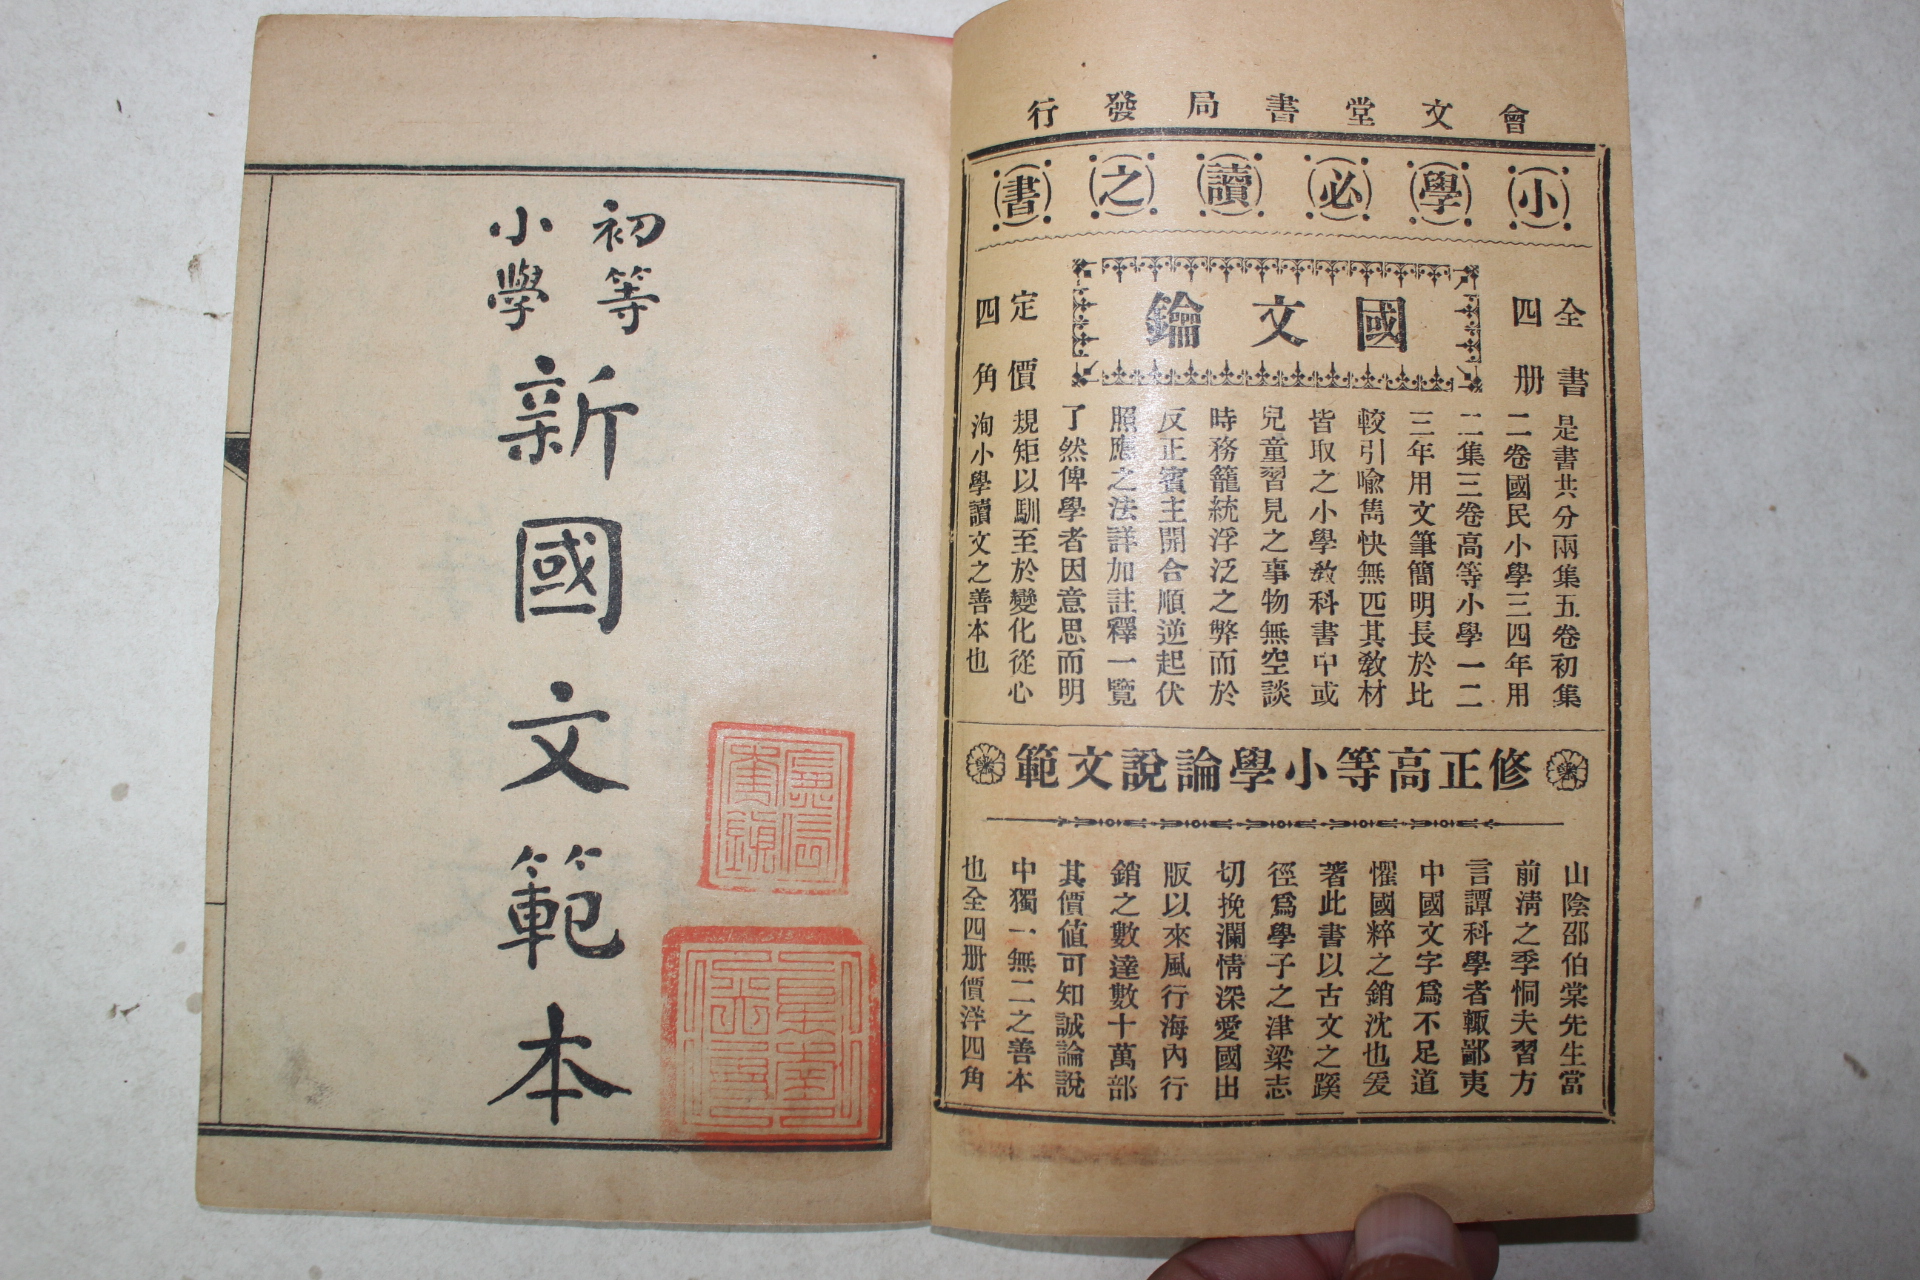 會文堂書局發行
小學必讀之書
全書
四册
國文鑰
定價
四角
是書共分兩集五卷初集
二卷國民小學三四年用
二集三卷高等小學一二
三年用文筆簡明長於比
較引喩雋快無匹其敎材
皆取之小學敎科書中或
兒童習見之事物無空談
時務籠統浮泛之弊而於
反正賓主開合順逆起伏
照應之法詳加註釋一覽
了然俾學者因意思而明
規矩以馴至於變化從心
洵小學讀文之善本也
修正高等小學論說文範
山陰邵伯棠先生當
前淸之季恫夫習方
言譚科學者輙鄙夷
中國文字爲不足道
懼國粹之銷沈也爰
著此書以古文之蹊
徑爲學子之津梁志
切挽瀾情深愛國出
版以來風行海內行
銷之數達數十萬部
其價値可知誠論說
中獨一無二之善本
也全四册價洋四角
初等
小學
新國文範本